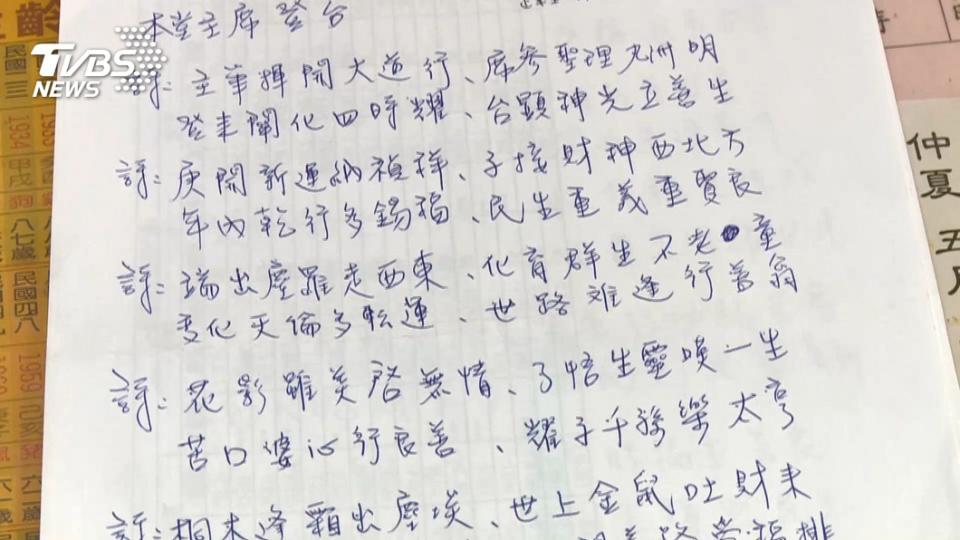 本堂主席登台
TVBS NEWS
詩：主筆揮開大道行、席參聖理九洲明
登来闡化四時耀、台顕神光立善生
詩：庚開新運納禎祥、子接財神西北方
年内乾行多錫福、民生重義重賢良
詩：瑞出塵羅走西東、化育群生不老童
变化天倫多転運、世路难逢行善翁
詩：花影雖美啓無情、了悟生靈嘆一生
苦口婆心行良善、耀子千孫樂太亨
詩：桐木逢霜出塵埃、世上金鼠吐財来
仲夏
五月
齡
民國
1934
甲戌
狗
八七歲
民國四八
1959
己亥